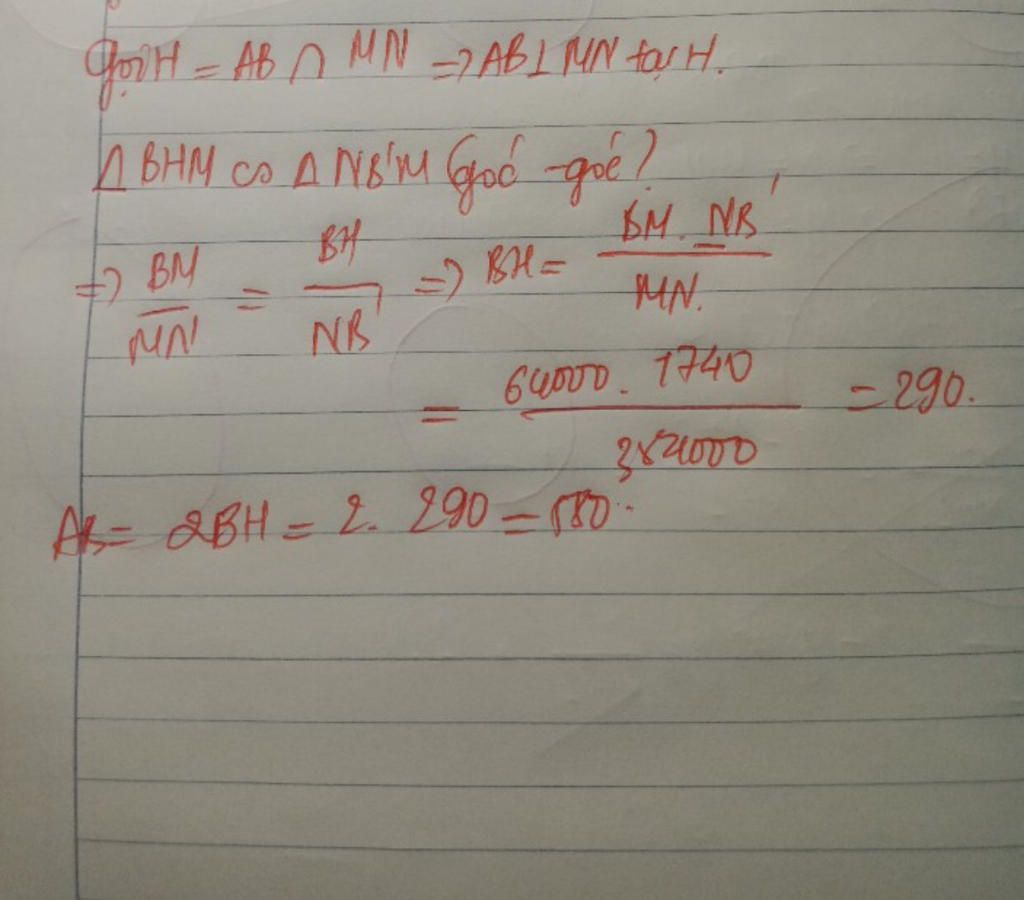 Gọi H = AB ∩ MN => AB ⊥ MN tại H.
Δ BHM ∽ Δ NB'M (góc - góc)
=> BM/MN = BH/NB' => BH = BM. NB'/MN.
= 64000. 1740/384000 = 290.
AB = 2BH = 2. 290 = 580.